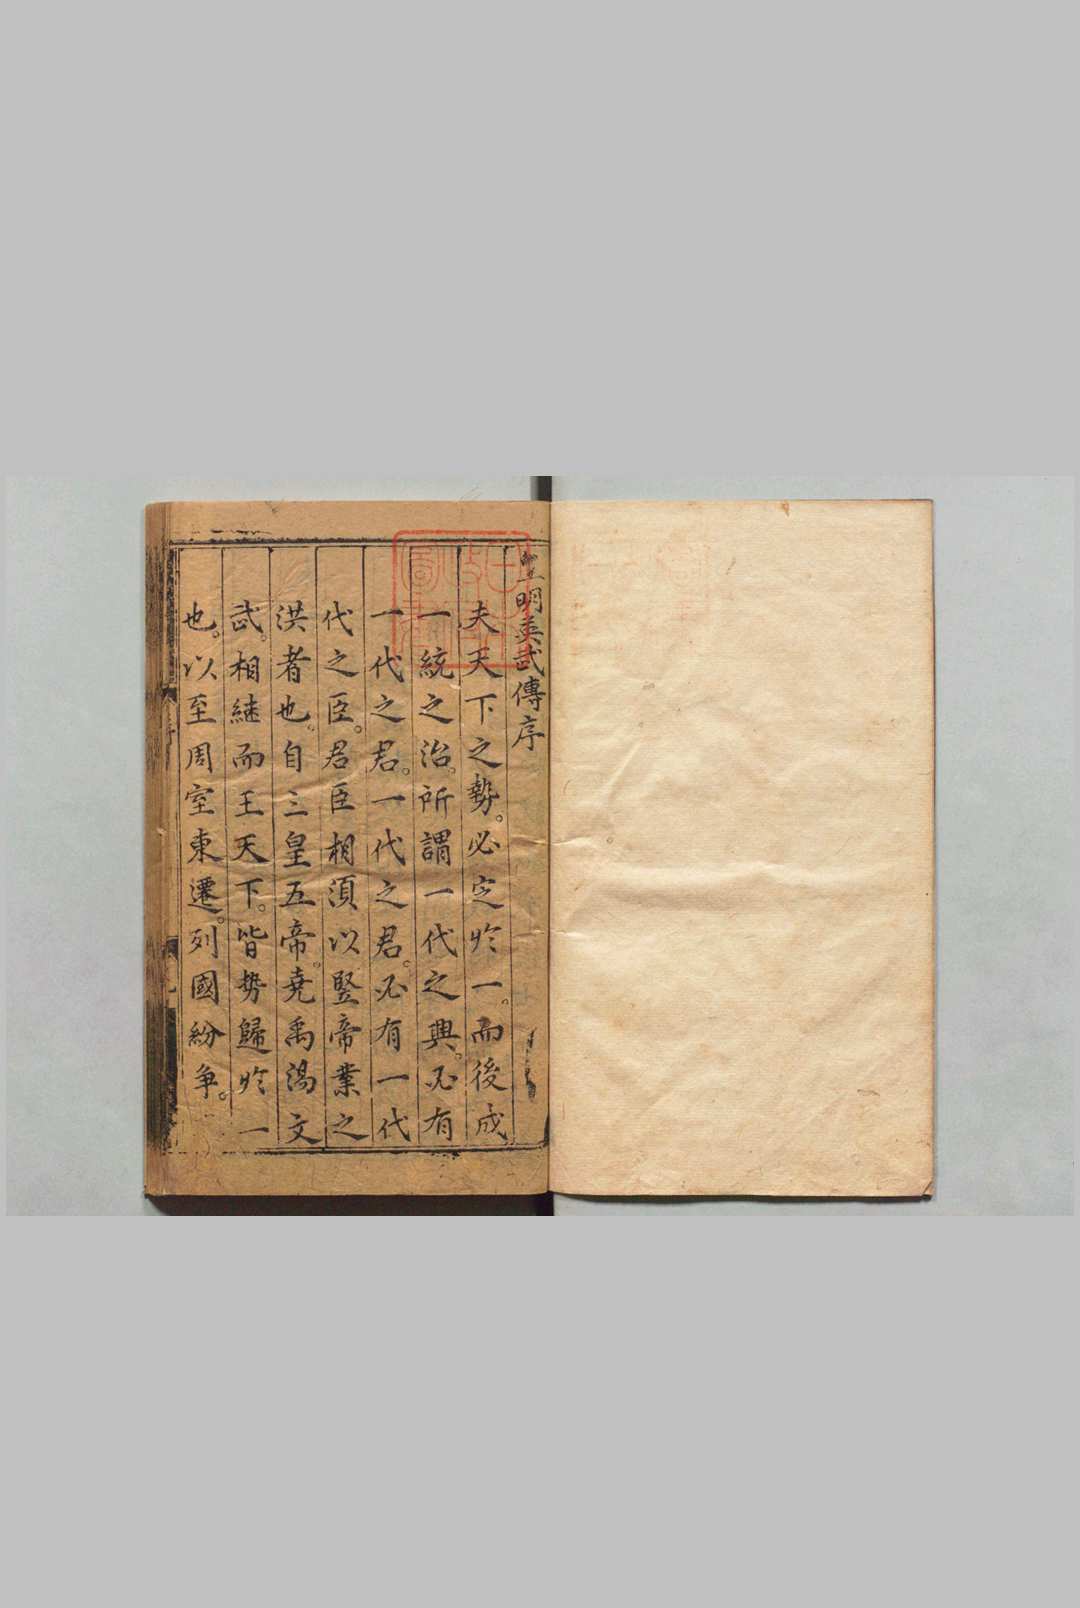 皇明英武傳序
夫天下之勢。必定於一。而後成
一統之治。所謂一代之興。必有
一代之君。一代之君。必有一代
代之臣。君臣相須以豎帝業之
洪者也。自三皇五帝。堯禹湯文
武。相継而王天下。皆势歸於一
也。以至周室東遷。列國紛争。
序